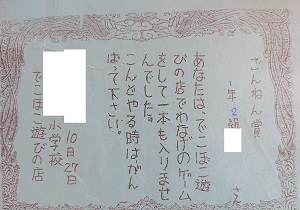 ざんねん賞
1年2組
さん
あなたは、でこぼこ遊
びの店でわなげのゲーム
をして一本も入りませ
んでした。
こんどやる時はがん
ばって下さい。
10月27日
小学校
でこぼこ遊びの店